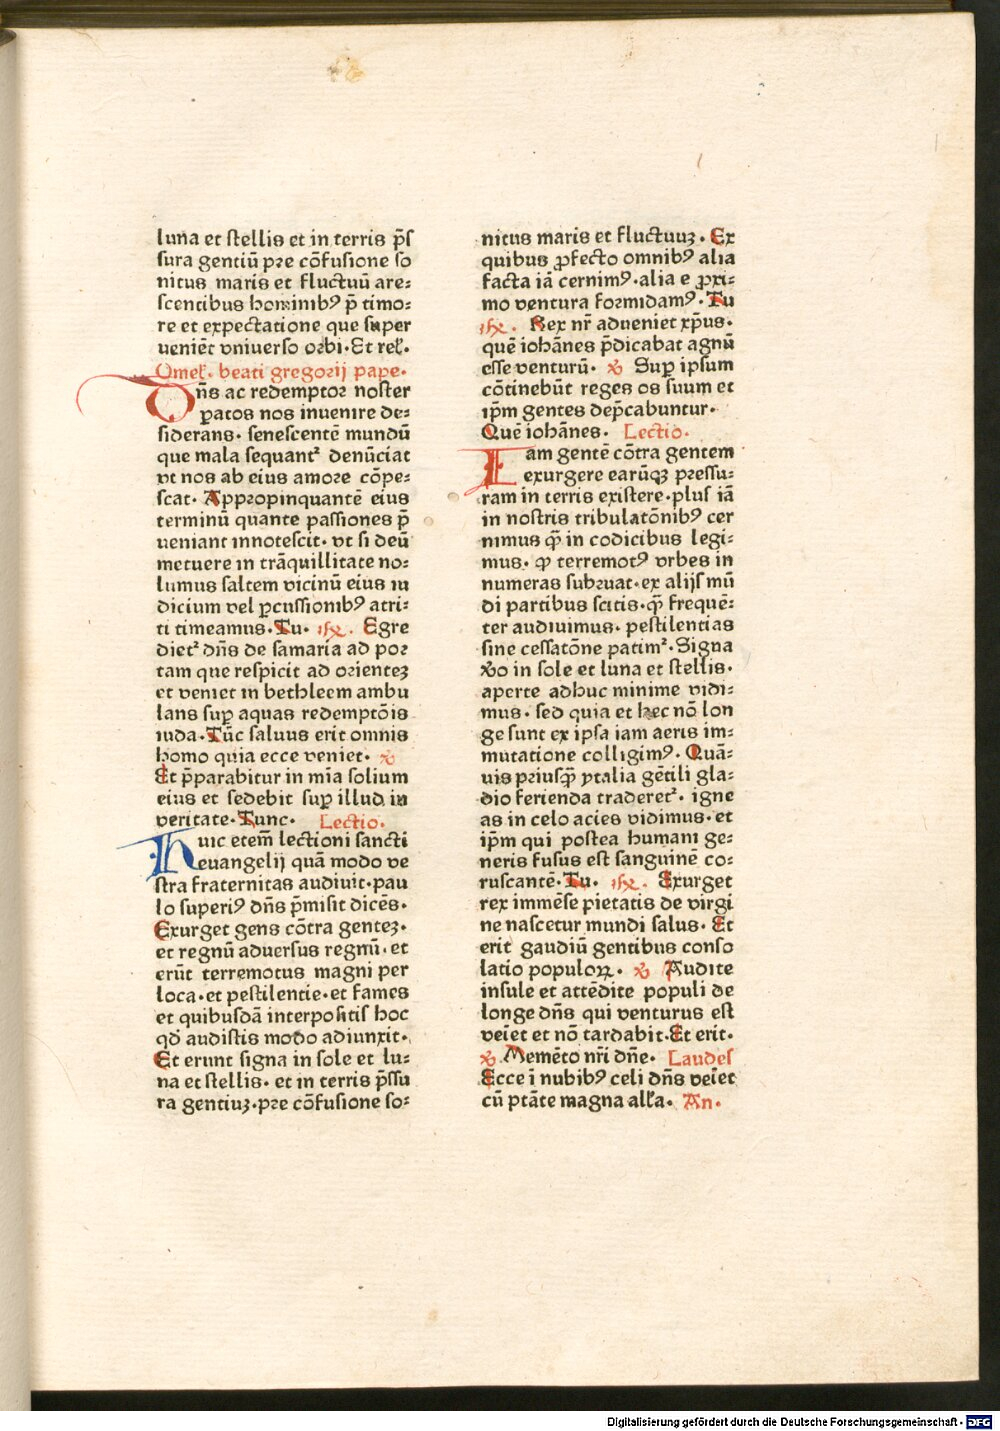 luna et stellis et in terris p̄s
sura gentiū pre cōfusione so
nitus maris et fluctuū are⸗
scentibus hominibꝰ p̄ timo⸗
re et expectatione que super
ueniēt vniuerso orbi·Et rel̕.
Omel̕. beati gregorij pape·
Dn̄s ac redemptor noster
ꝑatos nos inuenire de⸗
siderans· senescentē mundū
que mala sequantᷣ denūciat
vt nos ab eius amore cōpe⸗
scat· Appropinquantē eius
terminū quante passiones p̄
ueniant innotescit· vt si deū
metuere in trāquillitate no⸗
lumus saltem vicinū eius iu
dicium vel ꝑcussionibꝰ atri⸗
ti timeamus·Tu· ℟. Egre
dietᷣ dn̄s de samaria ad por
tam que respicit ad orienteꝫ
et veniet in bethleem ambu
lans suꝑ aquas redemptōis
iuda·Tūc saluus erit omnis
homo quia ecce veniet· ℣
Et p̄parabitur in mīa solium
eius et sedebit suꝑ illud in
veritate·Tunc· Lectio·
Huic etem̄ lectioni sancti
euangelij quā modo ve
stra fraternitas audiuit·pau
lo superiꝰ dn̄s p̄misit dicēs·
Exurget gens cōtra genteꝫ·
et regnū aduersus regnū·et
erūt terremotus magni per
loca·et pestilentie·et fames
et quibusdā interpositis hoc
qd̕ audistis modo adiunxit·
Et erunt signa in sole et lu⸗
na et stellis· et in terris p̄ssu
ra gentiuꝫ·pre cōfusione so⸗
nitus maris et fluctuuꝫ· Ex
quibus ꝓfecto omnibꝰ alia
facta iā cernimꝰ·alia e ꝓxi⸗
mo ventura formidamꝰ·Tu
℟. Rex nr̄ adueniet xp̄us·
quē iohānes p̄dicabat agnū
esse venturū· ℣ Suꝑ ipsum
cōtinebūt reges os suum et
ip̄m gentes dep̄cabuntur·
Quē iohānes· Lectio·
Eam gentē cōtra gentem
exurgere earūqꝫ pressu⸗
ram in terris existere·plus iā
in nostris tribulatōnibꝰ cer
nimus qͣ̄ in codicibus legi⸗
mus· ꝙ terremotꝰ vrbes in
numeras subruat·ex alijs mū
di partibus scitis·qͣ̄ frequē⸗
ter audiuimus· pestilentias
sine cessatōne patimᷣ·Signa
v̊o in sole et luna et stellis·
aperte adhuc minime vidi⸗
mus· sed quia et hec nō lon
ge sunt ex ipsa iam aeris im⸗
mutatione colligimꝰ·Quā⸗
uis priusqͣ̄ ytalia gētili gla⸗
dio ferienda traderetᷣ· igne
as in celo acies vidimus·et
ip̄m qui postea humani ge⸗
neris fusus est sanguinē co⸗
ruscantē·Tu· ℟. Exurget
rex immēse pietatis de virgi
ne nascetur mundi salus·Et
erit gaudiū gentibus conso
latio populoꝝ· ℣ Audite
insule et attēdite populi de
longe dn̄s qui venturus est
veīet et nō tardabit·Et erit·
℣ Memēto nr̄i dn̄e· Laudes
Ecce ī nubibꝰ celi dn̄s veīet
cū ptāte magna all̕a· An·
Digitalisierung gefördert durch die Deutsche Forschungsgemeinschaft - DFG